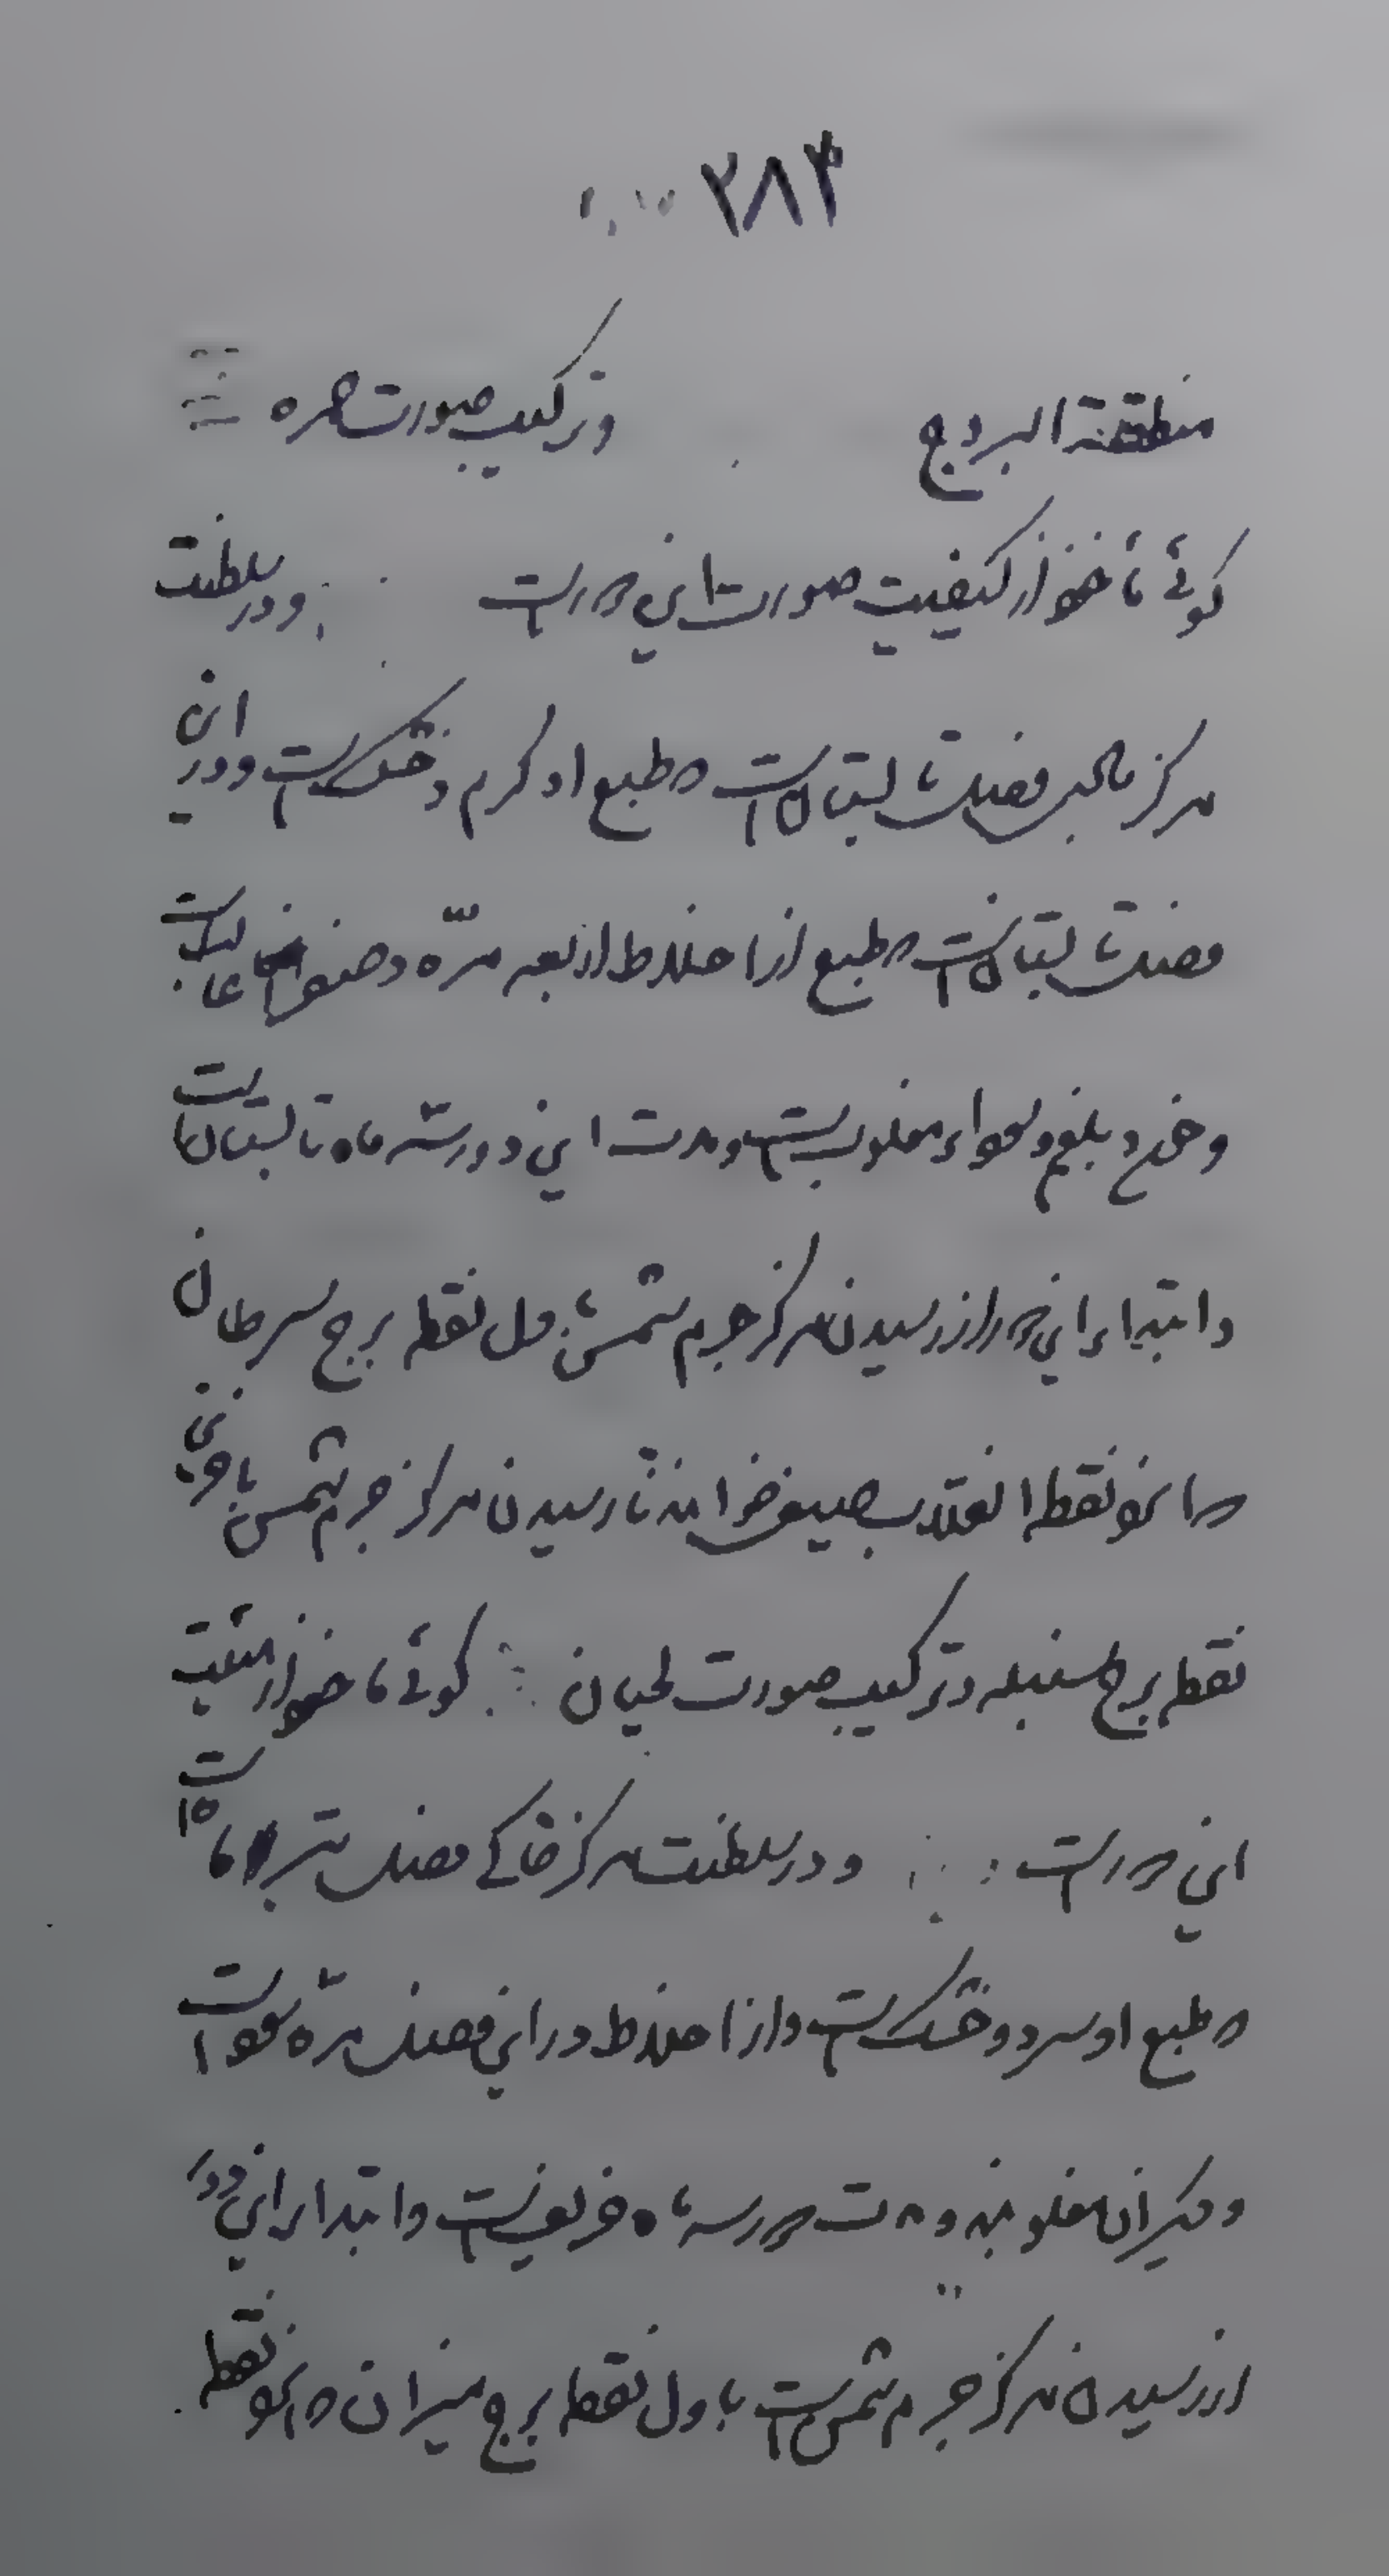 ۳۸۳
منطقة البروج وترکیب صورت حمره
کوئی مأخوذ از کیفیت صورت این دور است ودر سلطنت
مرکز فصل تابستان است و طبع او گرم و خشک است و در این
فصل تابستان است طبع از اخلاط اربعه مرّه و صفرا غالب است
و خون و بلغم و سودا مغلوب است و مدت این دور سه ماه تابستان است
و ابتداء این دور از رسیدن مرکز جرم شمس باول نقطه برج سرطان
که انرا نقطه انقلاب صیفی خوانند تا رسیدن مرکز جرم شمس باخرین
نقطه برج سنبله و ترکیب صورت لحیان کوئی مأخوذ از هیئت
این دور است و در سلطنت مرکز خاکی فصل تیر ماه است
که طبع او سرد و خشک است و از اخلاط در این فصل مرّه سودا است
و دیگران مغلوبند و مدت دور سه ماه خریف است و ابتداء این دور
از رسیدن مرکز جرم شمس است باول نقطه برج میزان که انرا نقطه